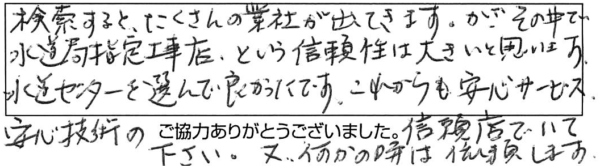 検索すると、たくさんの業社が出てきます。が、その中で
水道局指定工事店、という信頼性は大きいと思います。
水道センターを選んで良かったです。これからも安心サービス、
安心技術の ご協力ありがとうございました。信頼店でいて
下さい。又、何かの時は依頼します。